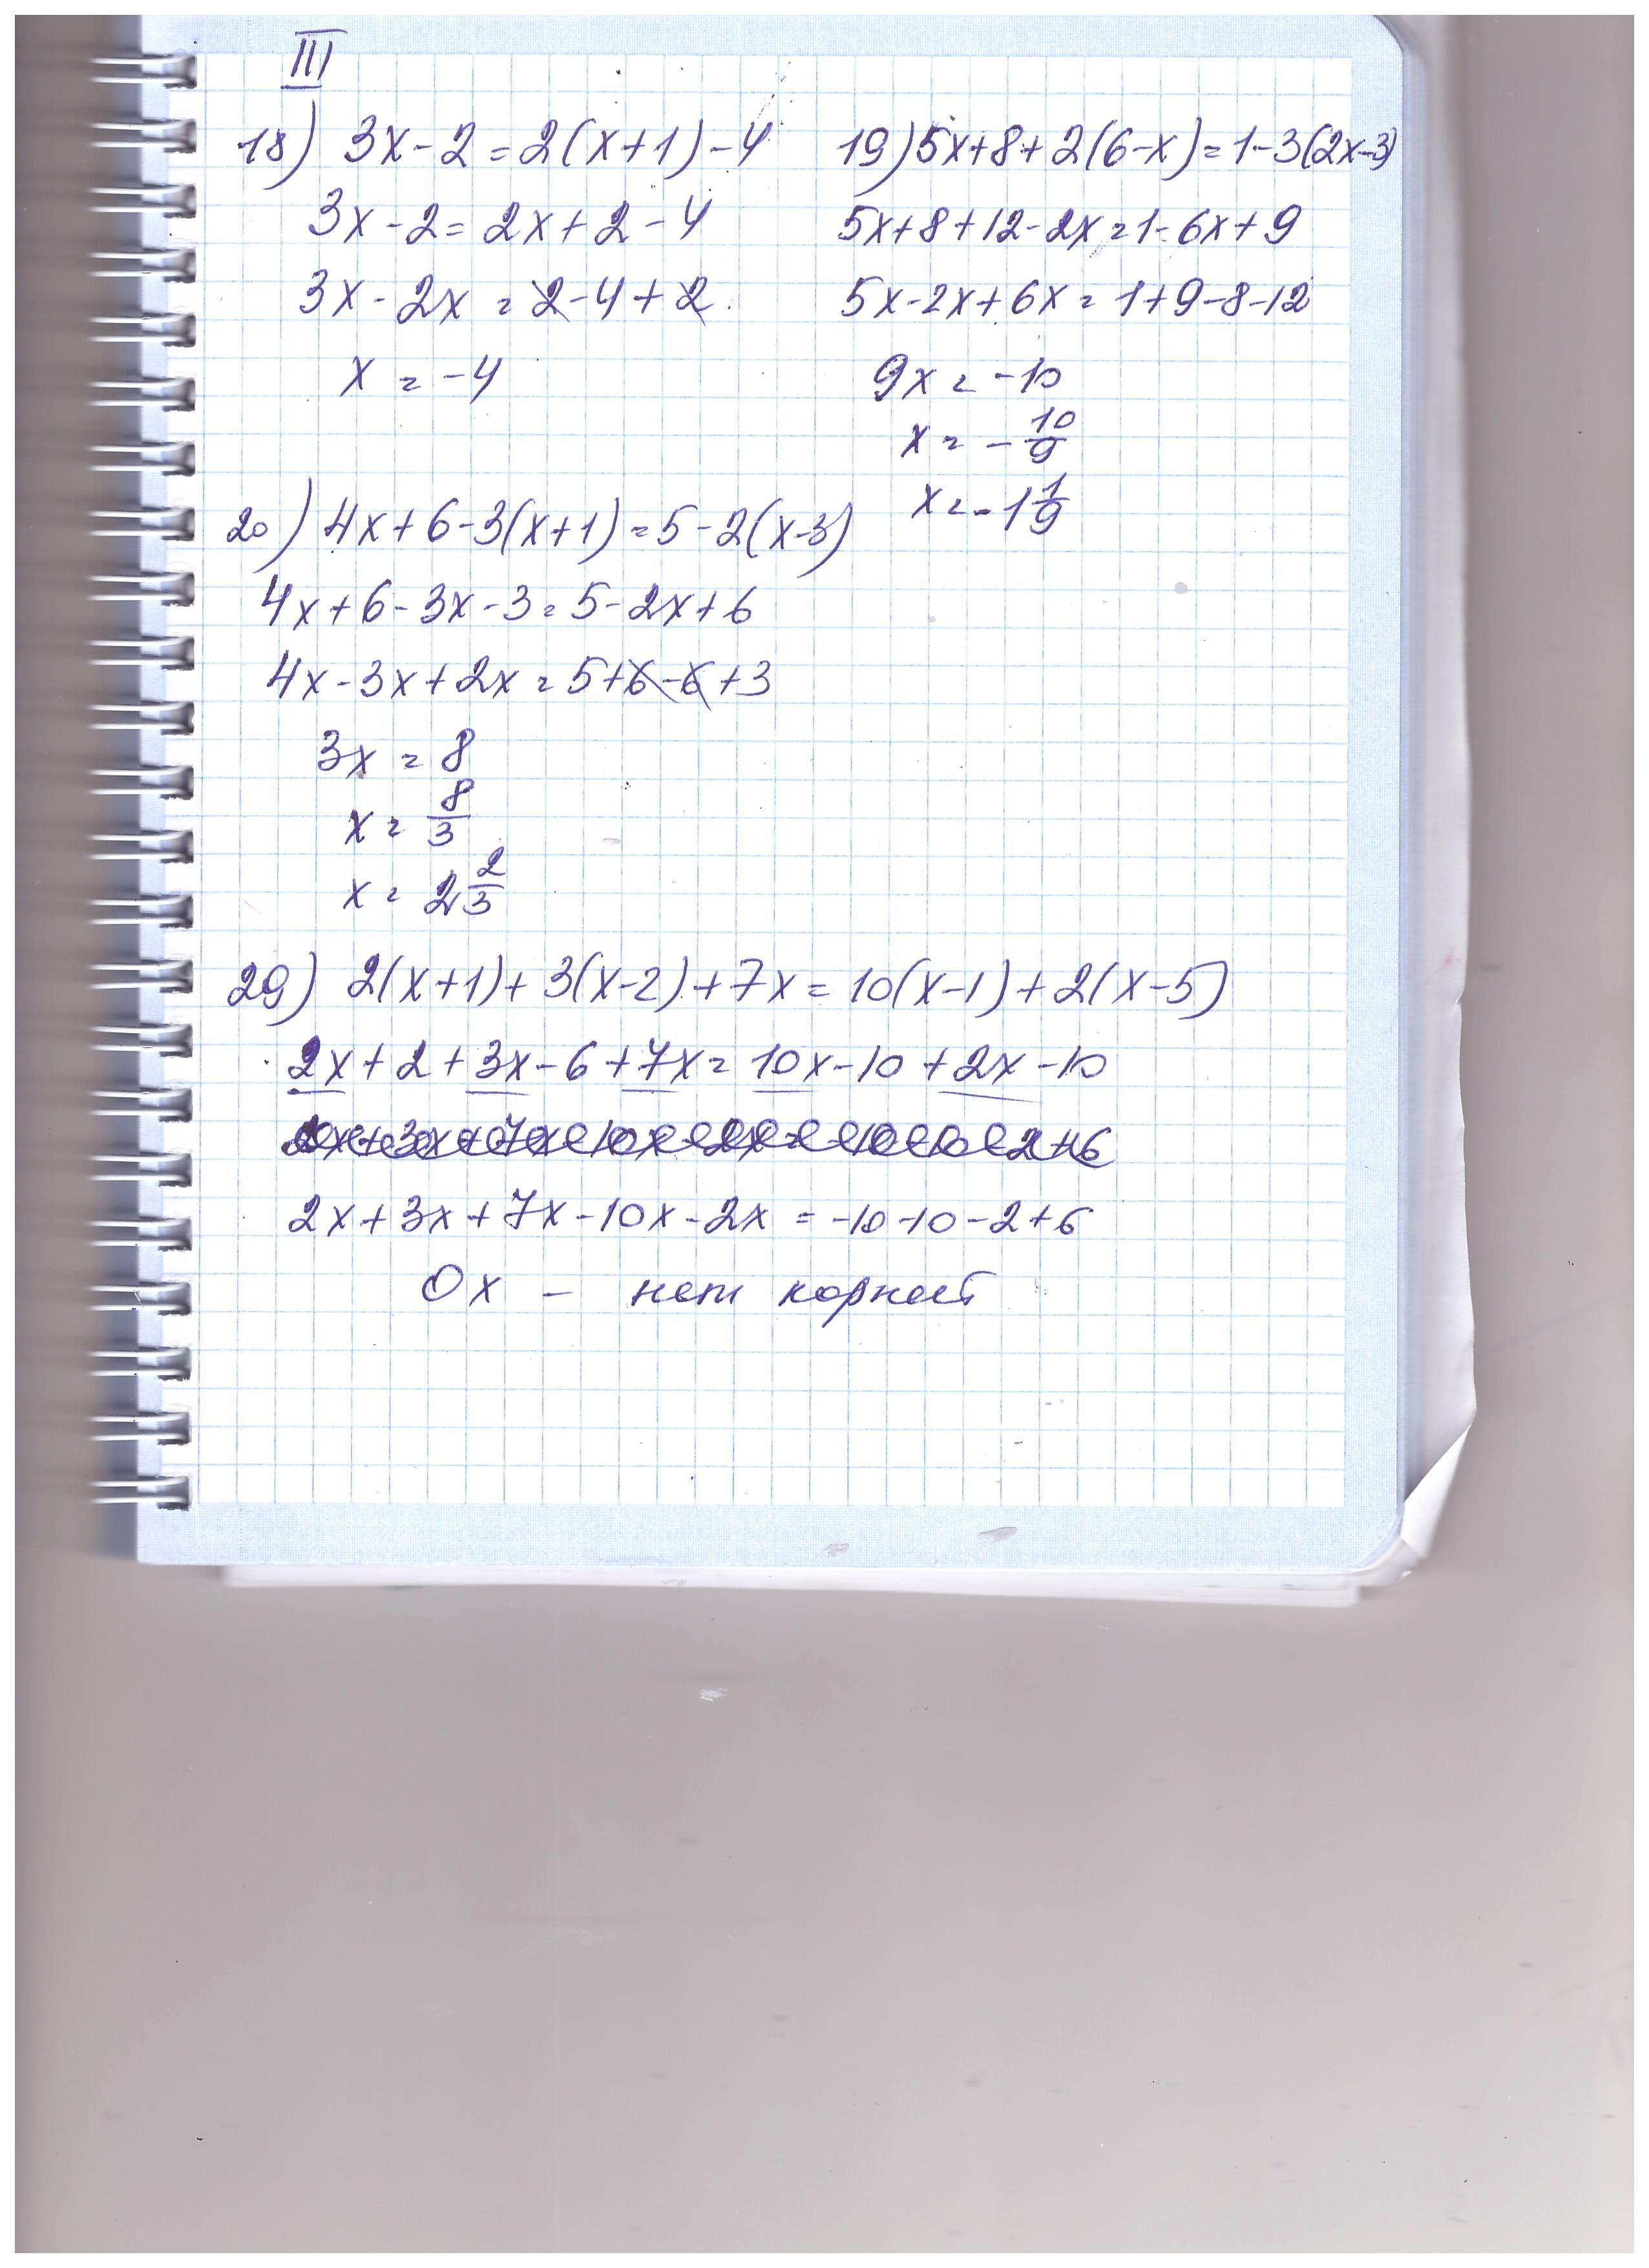 III
18) 3x-2=2(x+1)-4
3x-2=2x+2-4
3x-2x=2-4+2
x=-4
19) 5x+8+2(6-x)=1-3(2x-3)
5x+8+12-2x=1-6x+9
5x-2x+6x=1+9-8-12
9x=-10
x=-10/9
x=-1 1/9
20) 4x+6-3(x+1)=5-2(x-3)
4x+6-3x-3=5-2x+6
4x-3x+2x=5+6-6+3
3x=8
x=8/3
x=2 2/3
29) 2(x+1)+3(x-2)+7x=10(x-1)+2(x-5)
2x+2+3x-6+7x=10x-10+2x-10
2x+3x+7x-10x-2x=-10-10-2+6
0x - нет корней